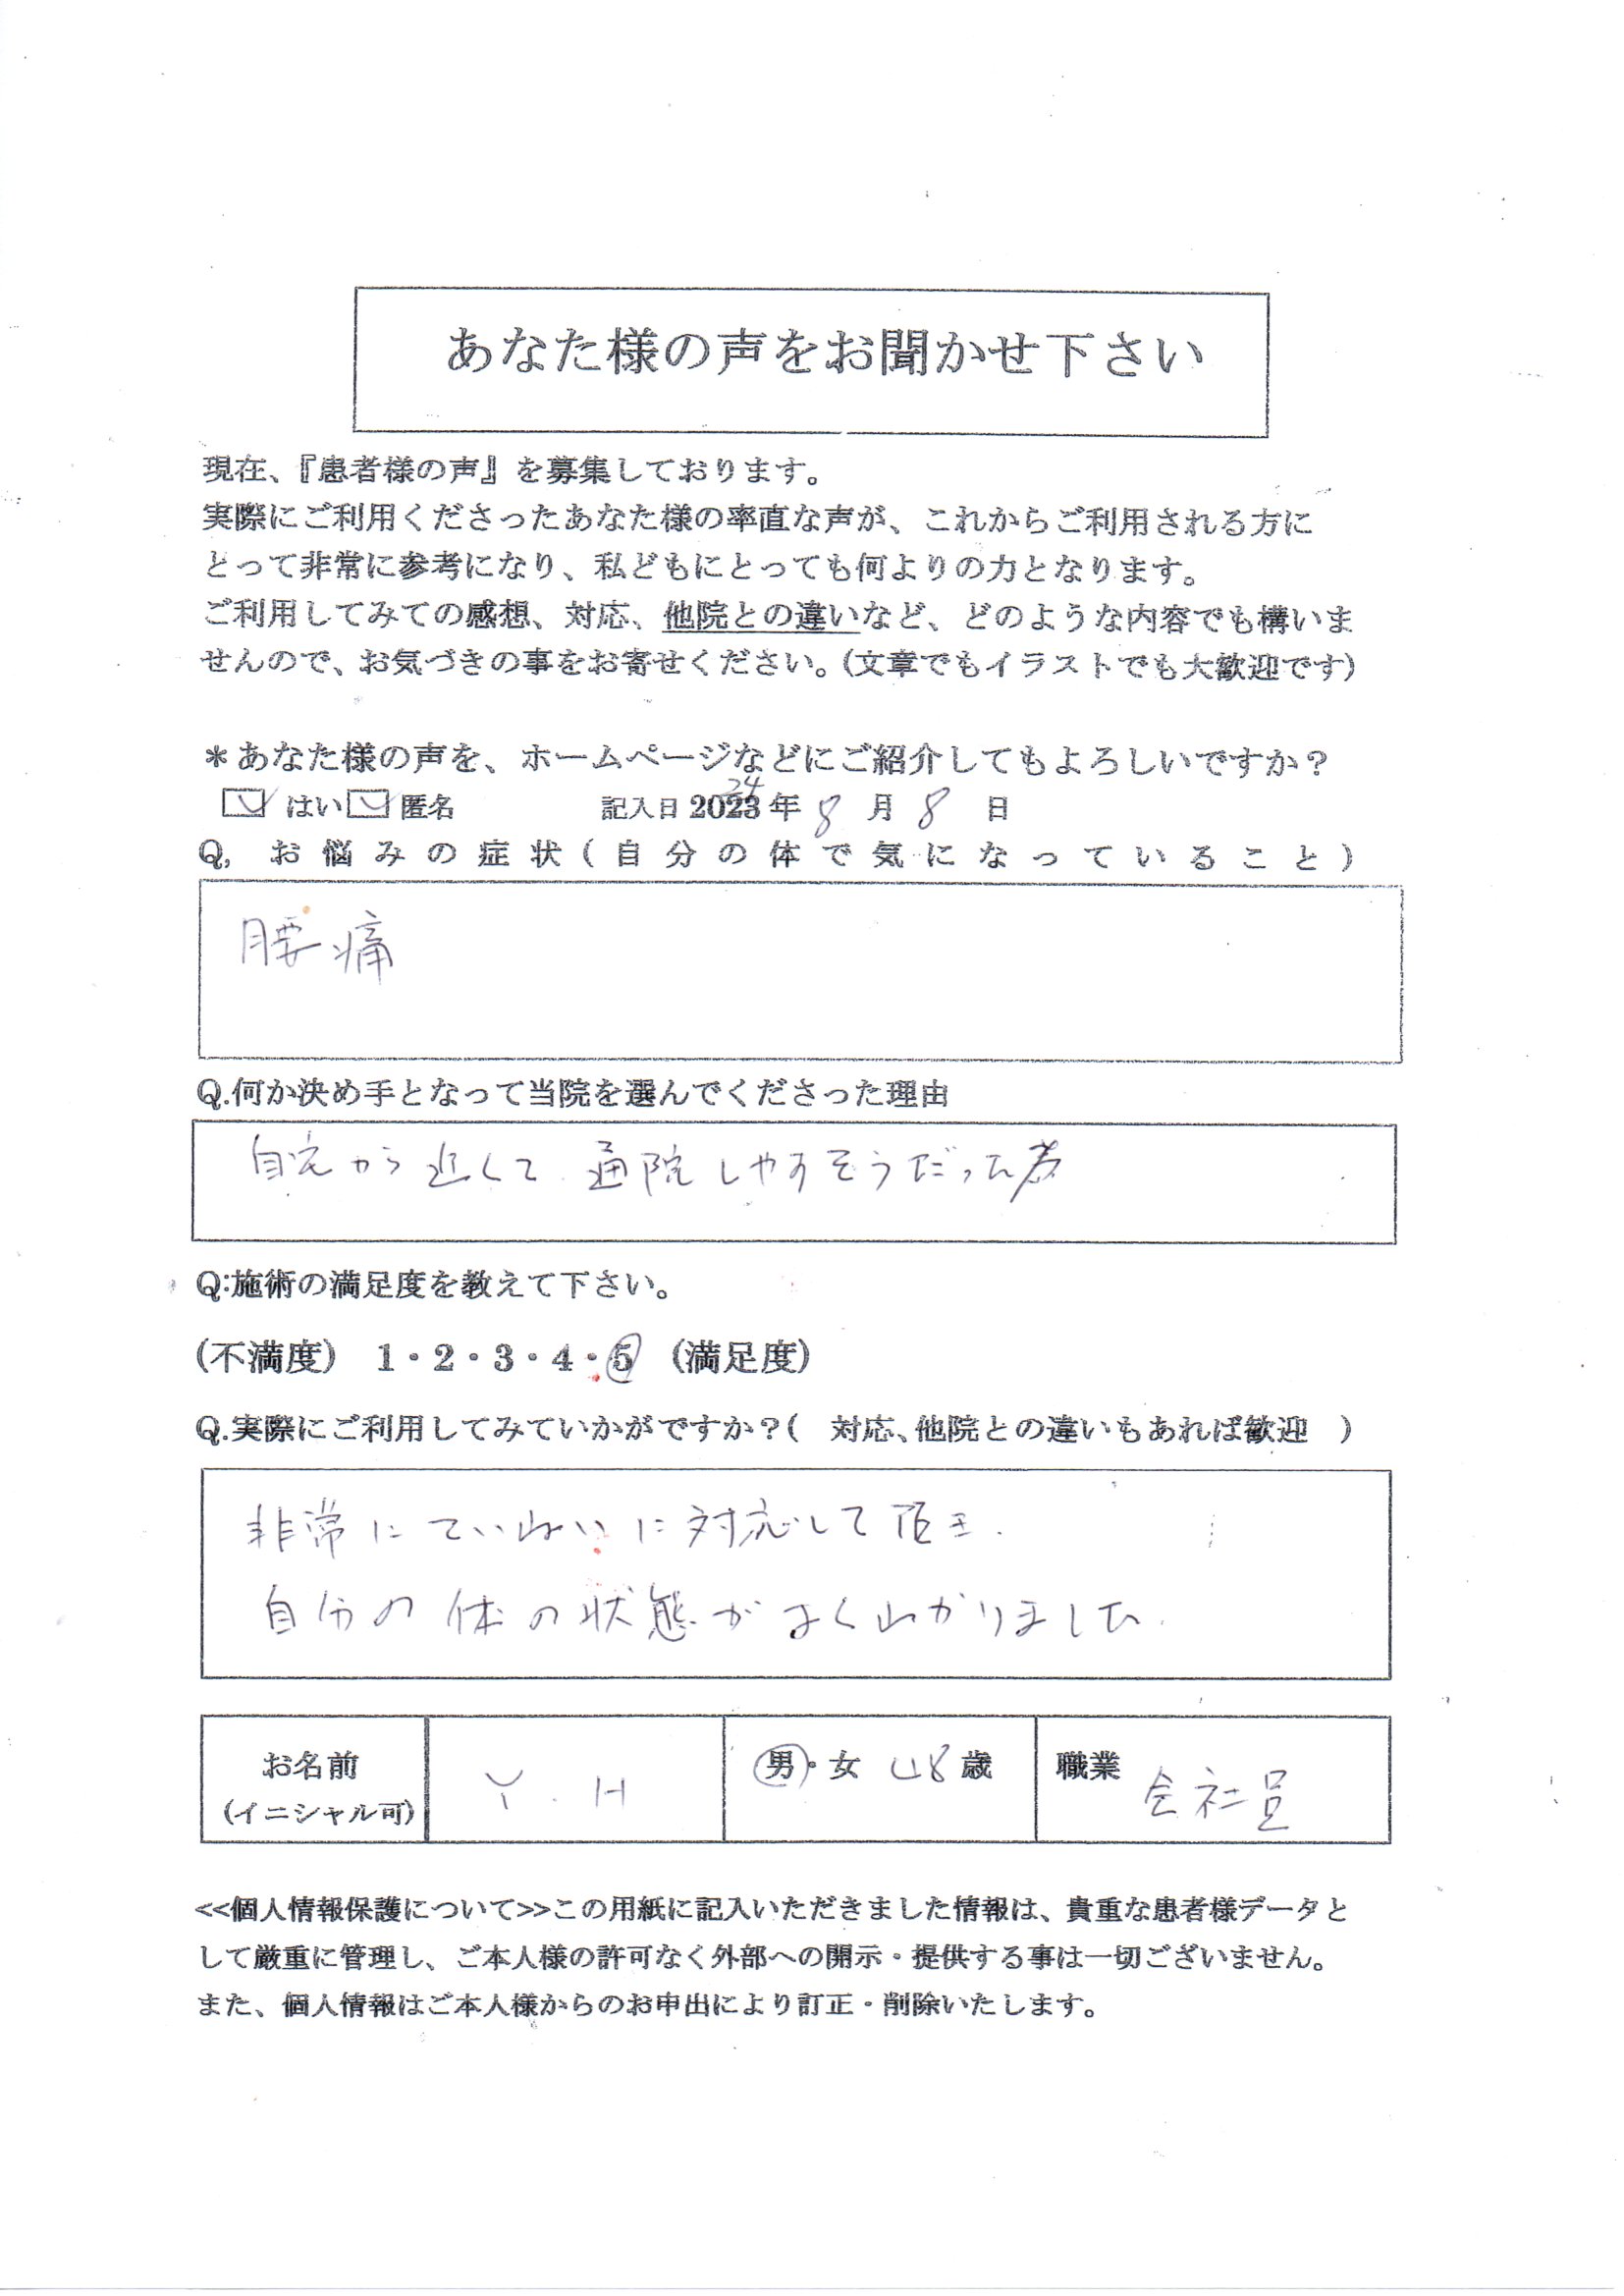 あなた様の声をお聞かせ下さい
現在、『患者様の声』を募集しております。
実際にご利用くださったあなた様の率直な声が、これからご利用される方に
とって非常に参考になり、私どもにとっても何よりの力となります。
ご利用してみての感想、対応、他院との違いなど、どのような内容でも構いま
せんので、お気づきの事をお寄せください。(文章でもイラストでも大歓迎です)
＊あなた様の声を、ホームページなどにご紹介してもよろしいですか？
はい 匿名 記入日 2023年 24 8 月 8 日
Q, お悩みの症状(自分の体で気になっていること)
腰痛
Q.何か決め手となって当院を選んでくださった理由
自宅から近くて、通院しやすそうだった為
Q:施術の満足度を教えて下さい。
(不満度) 1・2・3・4・5 (満足度)
Q.実際にご利用してみていかがですか？( 対応、他院との違いもあれば歓迎 )
非常にていねいに対応して頂き、
自分の体の状態がよくわかりました。
お名前 Y.H 男・女 48歳 職業 会社員
(イニシャル可)
<<個人情報保護について>>この用紙に記入いただきました情報は、貴重な患者様データと
して厳重に管理し、ご本人様の許可なく外部への開示・提供する事は一切ございません。
また、個人情報はご本人様からのお申出により訂正・削除いたします。